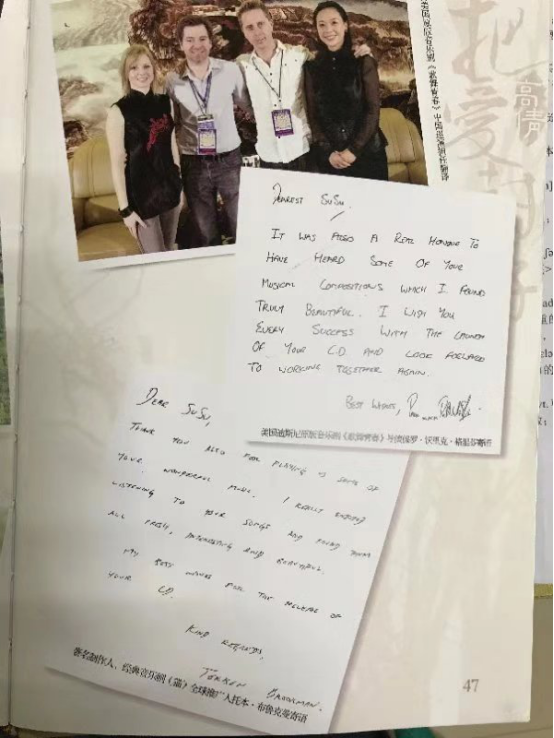 高倩
DEAREST SUSU,
IT WAS ALSO A REAL HONOUR TO
HAVE HEARD SOME OF YOUR
MUSICAL COMPOSITIONS WHICH I FOUND
TRULY BEAUTIFUL. I WISH YOU
EVERY SUCCESS WITH THE LAUNCH
OF YOUR C.D. AND LOOK FORWARD
TO WORKING TOGETHER AGAIN.
BEST WISHES,
美国迪斯尼原版音乐剧《歌舞青春》导演保罗·沃里克·格里芬寄语
DEAR SUSU,
THANK YOU ALSO FOR PLAYING US SOME OF
YOUR WONDERFUL MUSIC. I REALLY ENJOYED
LISTENING TO YOUR SONGS AND FOUND THEM
ALL FRESH, INTERESTING AND BEAUTIFUL.
MY BEST WISHES FOR THE RELEASE OF
YOUR CD.
KIND REGARDS,
TORBEN BROOKMAN.
著名制作人、经典音乐剧《猫》全球推广人托本·布鲁克曼寄语
47